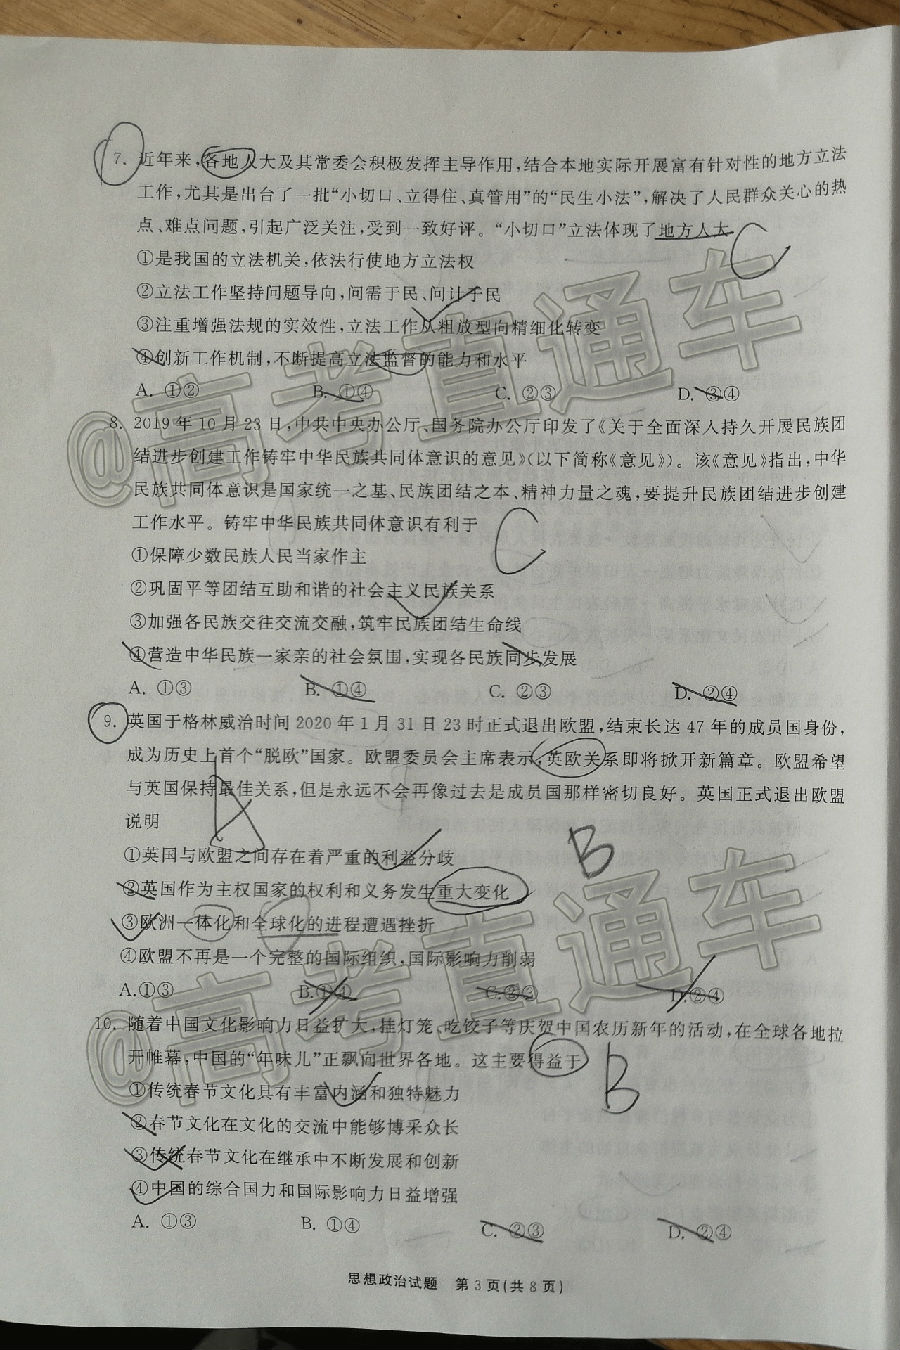 7. 近年来,各地人大及其常委会积极发挥主导作用,结合本地实际开展富有针对性的地方立法
工作,尤其是出台了一批“小切口、立得住、真管用”的“民生小法”,解决了人民群众关心的热
点、难点问题,引起广泛关注,受到一致好评。“小切口”立法体现了地方人大
C
①是我国的立法机关,依法行使地方立法权
②立法工作坚持问题导向,问需于民、问计于民
③注重增强法规的实效性,立法工作从粗放型向精细化转变
④创新工作机制,不断提高立法监督的能力和水平
A. ①② B. ①④ C. ②③ D. ③④
@高考直通车
8. 2019年10月23日,中共中央办公厅、国务院办公厅印发了《关于全面深入持久开展民族团
结进步创建工作铸牢中华民族共同体意识的意见》(以下简称《意见》)。该《意见》指出,中华
民族共同体意识是国家统一之基、民族团结之本、精神力量之魂,要提升民族团结进步创建
工作水平。铸牢中华民族共同体意识有利于
C
①保障少数民族人民当家作主
②巩固平等团结互助和谐的社会主义民族关系
③加强各民族交往交流交融,筑牢民族团结生命线
④营造中华民族一家亲的社会氛围,实现各民族同步发展
A. ①③ B. ①④ C. ②③ D. ②④
9. 英国于格林威治时间2020年1月31日23时正式退出欧盟,结束长达47年的成员国身份,
成为历史上首个“脱欧”国家。欧盟委员会主席表示,英欧关系即将掀开新篇章。欧盟希望
与英国保持最佳关系,但是永远不会再像过去是成员国那样密切良好。英国正式退出欧盟
说明
A
B
①英国与欧盟之间存在着严重的利益分歧
②英国作为主权国家的权利和义务发生重大变化
③欧洲一体化和全球化的进程遭遇挫折
④欧盟不再是一个完整的国际组织,国际影响力削弱
A.①③ B.①④ C.②③ D.②④
@高考直通车
10. 随着中国文化影响力日益扩大,挂灯笼、吃饺子等庆贺中国农历新年的活动,在全球各地拉
开帷幕,中国的“年味儿”正飘向世界各地。这主要得益于
B
①传统春节文化具有丰富内涵和独特魅力
②春节文化在文化的交流中能够博采众长
③传统春节文化在继承中不断发展和创新
④中国的综合国力和国际影响力日益增强
A. ①③ B. ①④ C. ②③ D. ②④
思想政治试题 第3页(共8页)